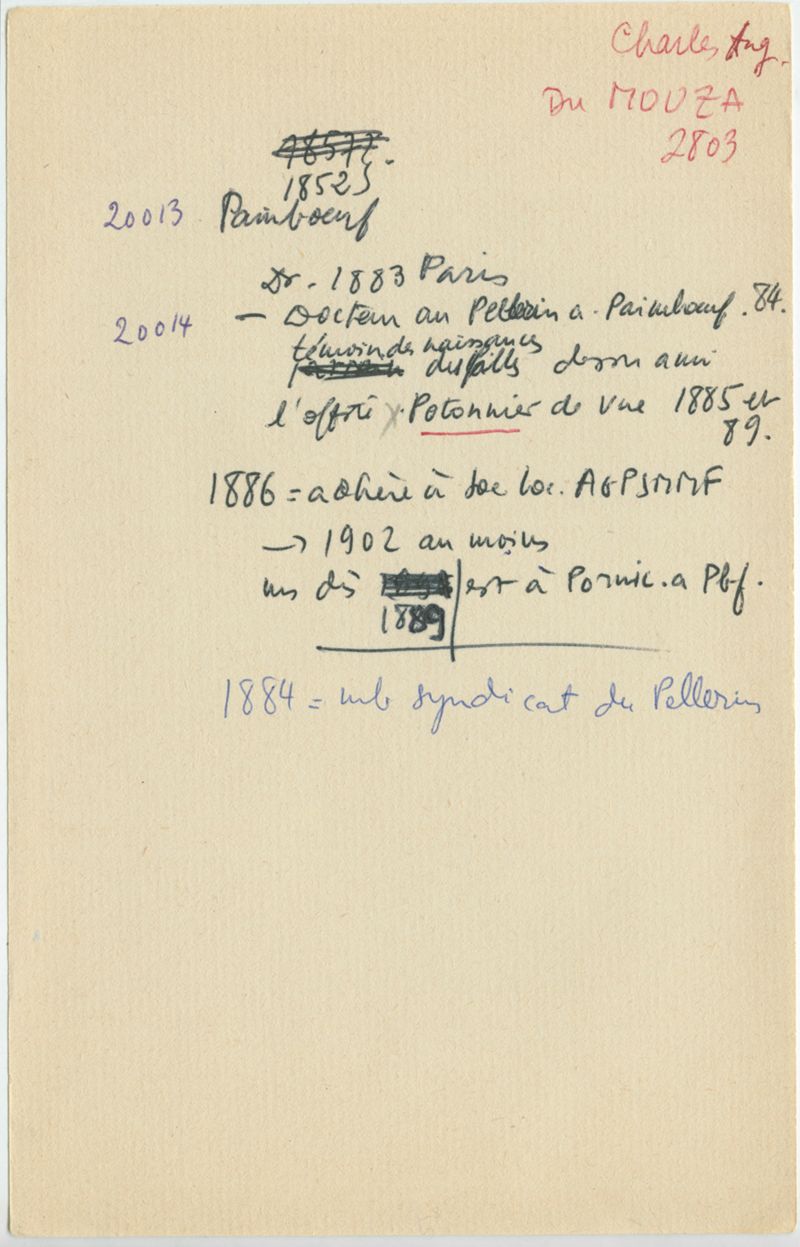 Charles Aug.
Du MOUZA
2803
18525
20013 Paimboeuf
Dr. 1883 Paris
20014 – Docteur au Pellerin a. Paimboeuf. 84.
témoin des naissances
des filles de son ami
l'offté Potonnier de vue 1885 et
89.
1886 = adhère à Soc loc. AGPSMMF
→ 1902 au moins
ms dès est à Pornic. a Pbf.
1889
1884 = mb syndicat du Pellerin